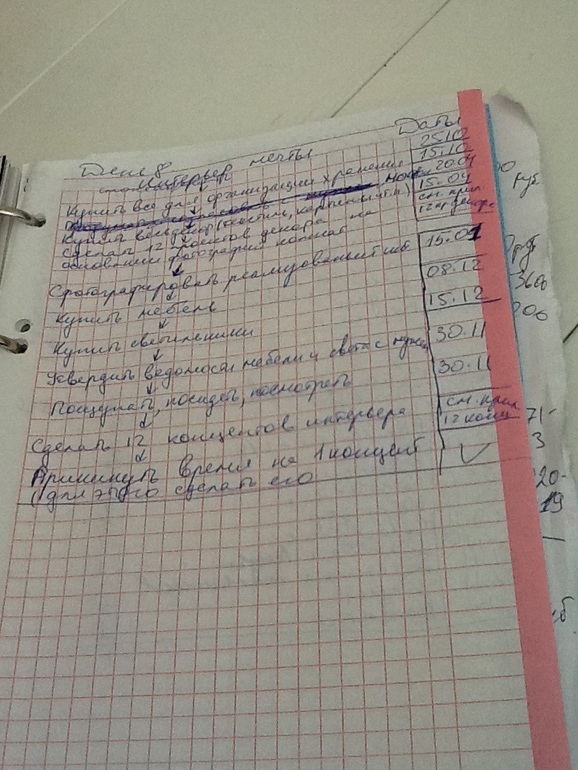 Цель 8 Даты
Интерьер мечты 25.10
15.10
Купить все для организации хранения 20.09
15.09
Купить все текстиль, картины и т.п.) см. прил
Сделать 12 концептов декора на 12 к. декора
основании фотографий комнат
Сфотографировать реализованный 15.01
Купить мебель 08.12
Купить светильники 15.12
Утвердить ведомость мебели и света с мужем 30.11
Пощупать, посидеть, посмотреть 30.11
Сделать 12 концептов интерьера см. прил
12 конц
Прикинуть время на 1 концепт V
(для этого сделать его
руб
3600
200
71-
3
20-
19